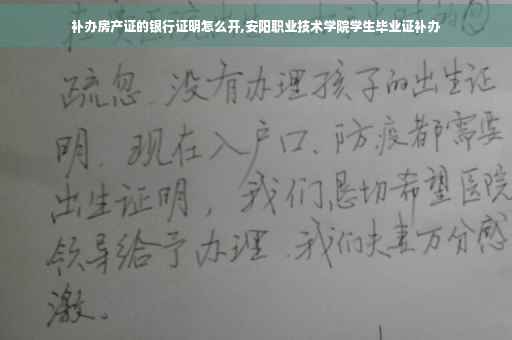 补办房产证的银行证明怎么开,安阳职业技术学院学生毕业证补办
疏忽、没有办理孩子的出生证
明、现在入户口、防疫都需要
出生证明，我们恳切希望医院
领导给予办理、我们夫妻万分感
激。